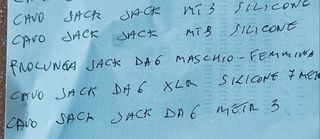 CAVO JACK JACK MT 3 SILICONE
CAVO JACK JACK MT 3 SILICONE
PROLUNGA JACK DA 6 MASCHIO - FEMMINA
CAVO JACK DA 6 XLR SILICONE 7 METR
CAVO JACK JACK DA 6 METR 3